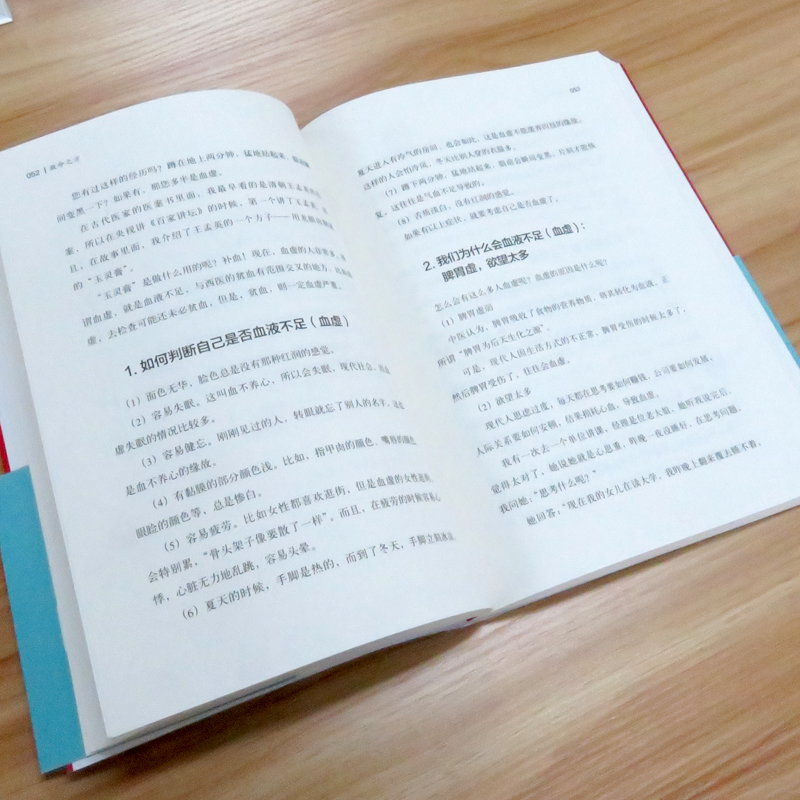 052 | 救命之方
您有过这样的经历吗？蹲在地上两分钟，猛地站起来，眼前瞬
间变黑一下？如果有，那您多半是血虚。
在古代医家的医案书里面，我最早看的是清朝王孟英的医
案，所以在央视讲《百家讲坛》的时候，第一个讲了王孟英，而
且，在故事里面，我介绍了王孟英的一个方子——用龙眼肉做成
的“玉灵膏”。
“玉灵膏”是做什么用的呢？补血！现在，血虚的人非常多，所
谓血虚，就是血液不足，与西医的贫血有范围交叉的地方，但血
虚，去检查可能还未必贫血，但是，贫血，则一定血虚严重。
1. 如何判断自己是否血液不足（血虚）
（1）面色无华，脸色总是没有那种红润的感觉。
（2）容易失眠，这叫血不养心，所以会失眠，现代社会，因血
虚失眠的情况比较多。
（3）容易健忘。刚刚见过的人，转眼就忘了别人的名字，这也
是血不养心的缘故。
（4）有黏膜的部分颜色浅。比如，指甲肉的颜色、嘴唇的颜色、
眼睑的颜色等，总是惨白。
（5）容易疲劳。比如女性都喜欢逛街，但是血虚的女性逛街，
会特别累，“骨头架子像要散了一样”。而且，在疲劳的时候容易心
悸，心脏无力地乱跳，容易头晕。
（6）夏天的时候，手脚是热的，而到了冬天，手脚立刻冰凉。
053
夏天进入有冷气的房间，也会如此，这是血虚不能濡养四肢的缘故。
这样的人会怕冷风，冬天比别人穿的衣服多。
（7）蹲下两分钟，猛地站起来，眼前会瞬间变黑，片刻才能恢
复，这往往是气血不足导致的。
（8）舌质淡白，没有红润的感觉。
如果有以上症状，就要考虑自己是否血虚了。
2. 我们为什么会血液不足（血虚）：
脾胃虚，欲望太多
怎么会有这么多人血虚呢？血虚的原因是什么呢？
（1）脾胃虚弱
中医认为，脾胃吸收了食物的营养物质，将其转化为血液，正
所谓“脾胃为后天生化之源”。
可是，现代人因生活方式的不正常，脾胃受伤的时候太多了，
然后脾胃受伤了，往往会血虚。
（2）欲望太多
现代人思虑过度，每天都在思考要如何赚钱、公司要如何发展、
人际关系要如何安顿，结果损耗心血，导致血虚。
我有一次去一个单位讲课，经理是位老大姐，她听我说完后，
觉得太对了，她说她就是心思重，昨晚一夜没睡好，在思考问题。
我问她：“思考什么呢？”
她回答：“现在我的女儿在读大学，我昨晚上翻来覆去睡不着，